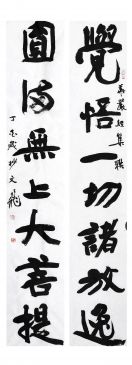 覺悟一切諸放逸
華嚴經集聯
圓滿無上大菩提
丁亥歲抄文龍